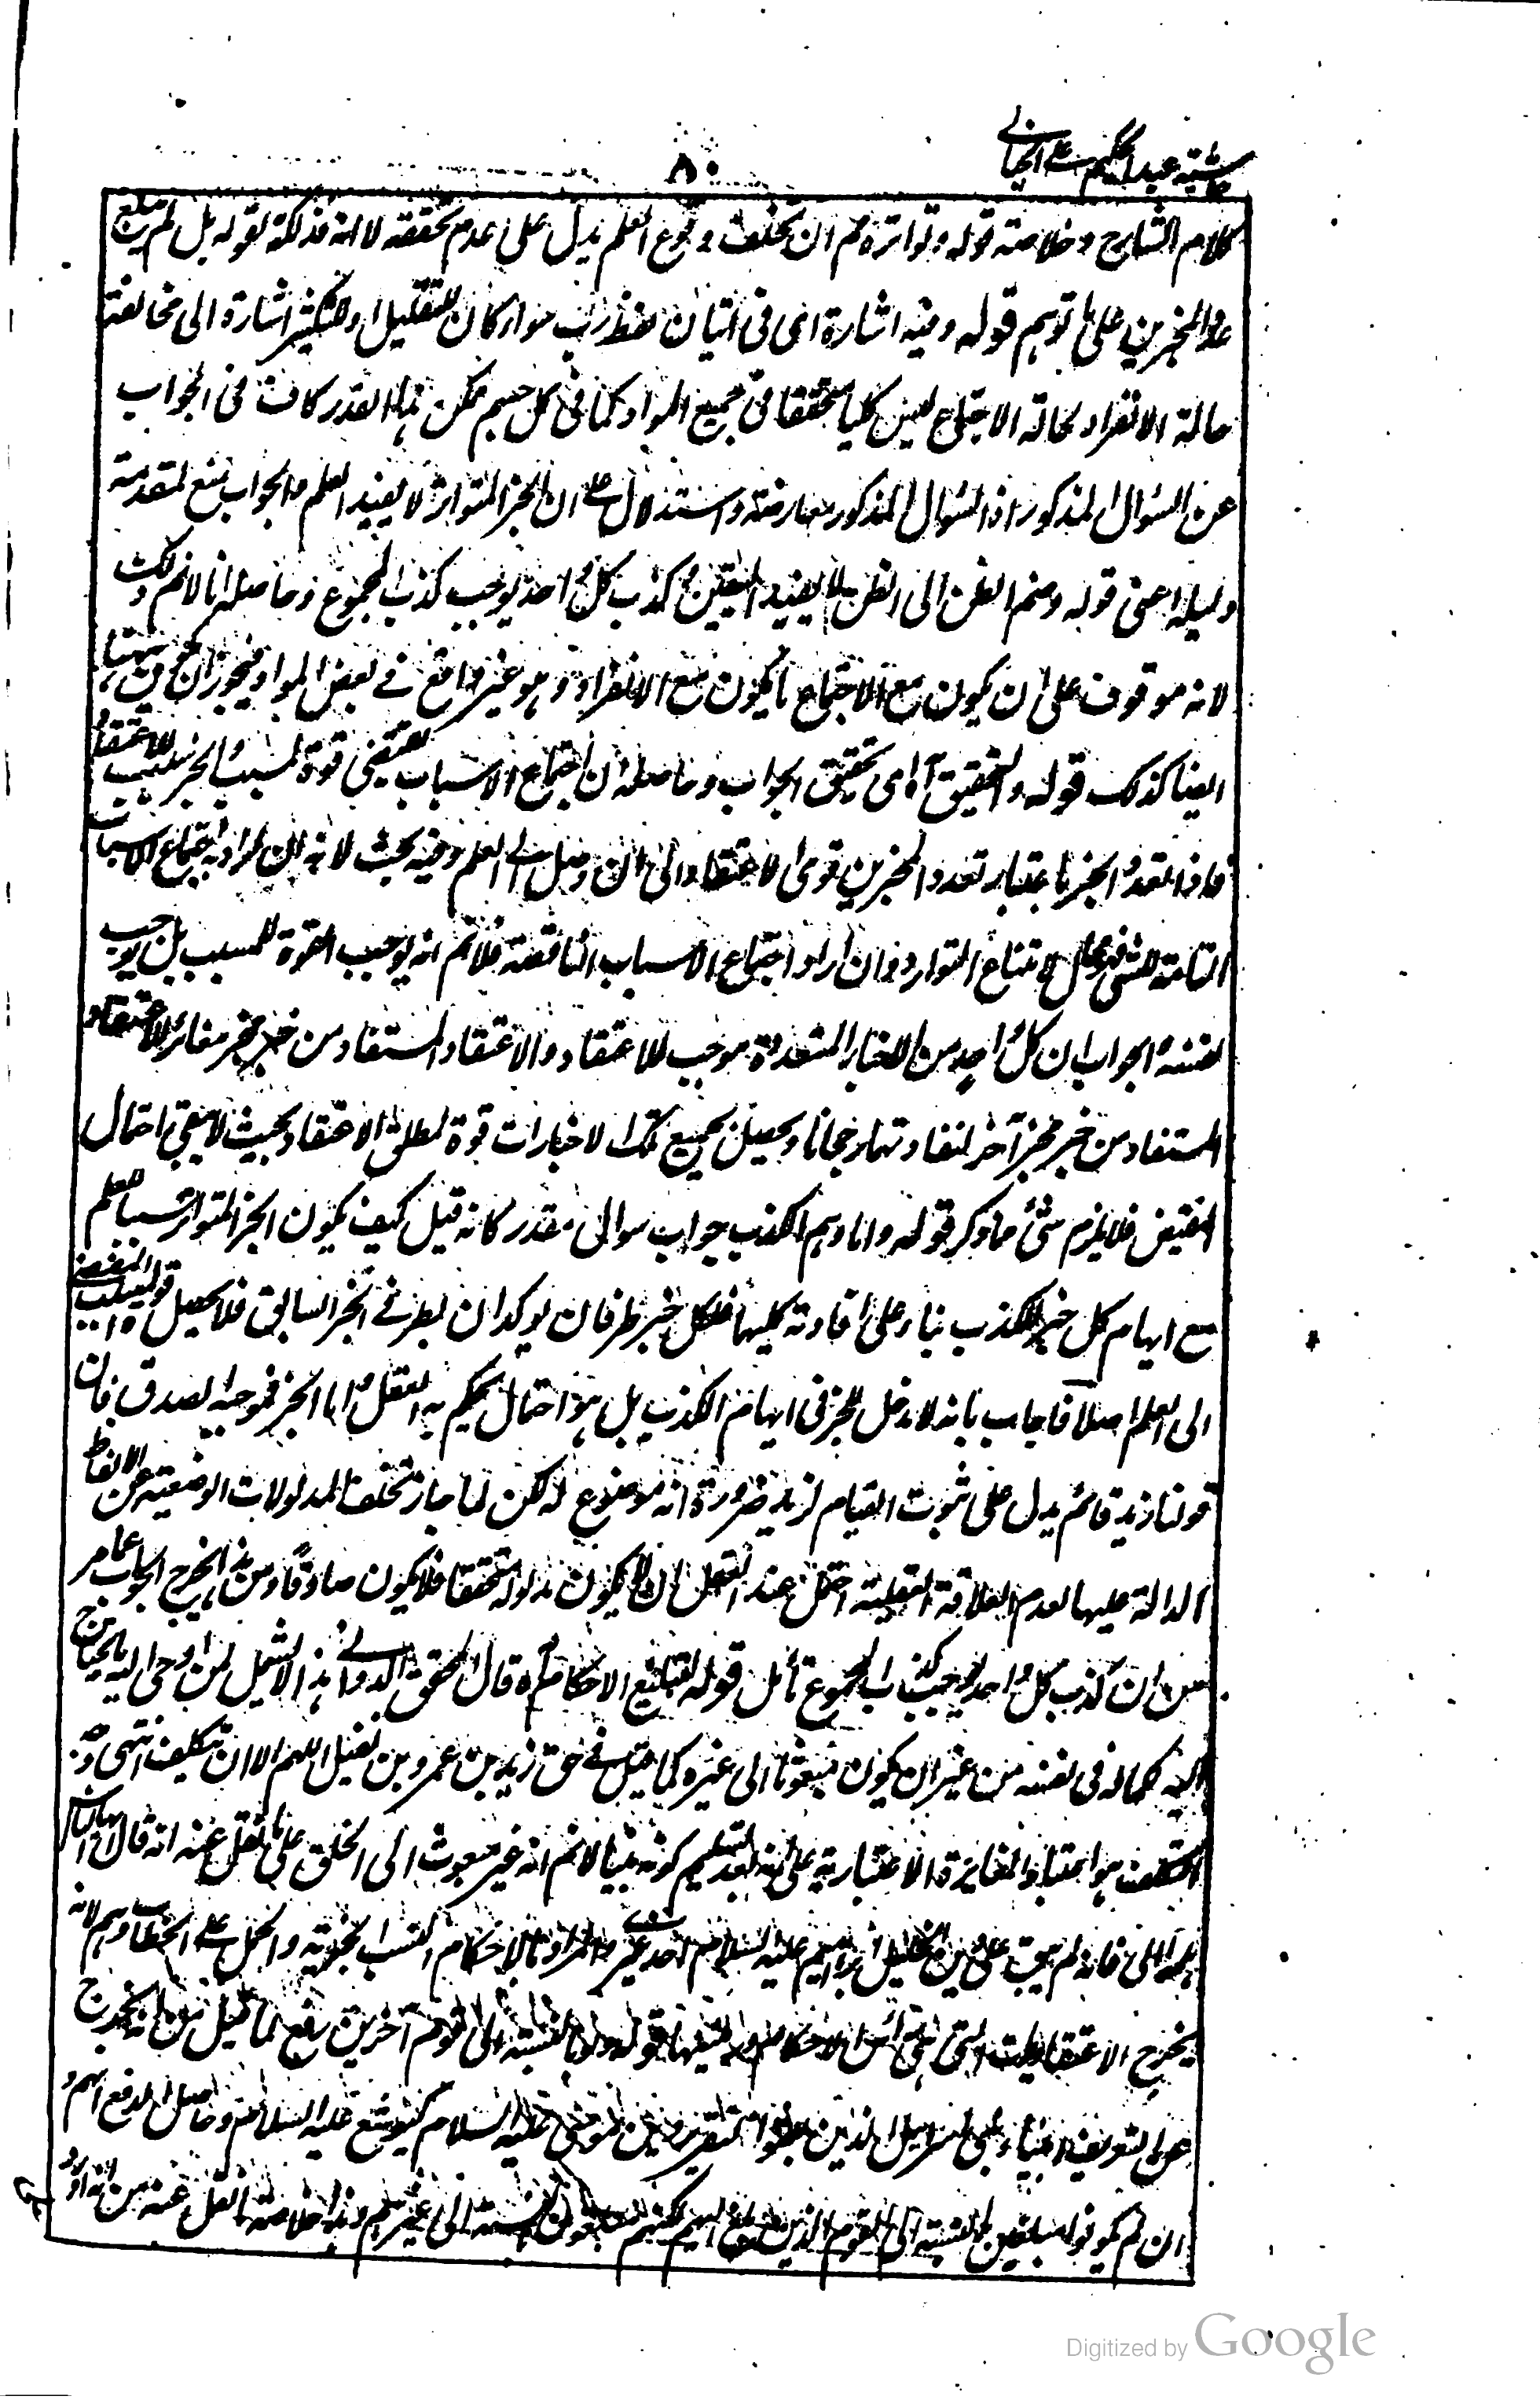 حاشية عبد الحكيم على الخيالي
٨٠
كلام الشارح وخلاصة قوله وتواتره مم ان تخلف وقوع العلم يدل على عدم تحققه لا انه فذلكة لقوله بل لم يبلغ
عدد المخبرين على ما توهم قوله وفيه اشارة اى فى اتيان لفظ رب سواء كان للتقليل او للتكثير اشارة الى مخالفة
حالة الانفراد لحالة الاجتماع ليس كليا متحققا فى جميع المواد كما فى كل جسم ممكن هذا القدر كاف فى الجواب
عن السؤال المذكور اذ السؤال المذكور معارضة واستدلال على ان الخبر المتواتر لا يفيد العلم والجواب منع لمقدمة
دليله اعنى قوله وضم الظن الى الظن لا يفيد اليقين وكذب كل واحد يوجب كذب المجموع وحاصله انا لانم ذلك
لانه موقوف على ان يكون مع الاجتماع ما يكون مع الانفراد وهو غير واقع فى بعض المواد فيجوز ان يكون ههنا
ايضا كذلك قوله والتحقيق آه اى تحقيق الجواب وحاصله ان اجتماع الاسباب يقتضى قوة المسبب والخبر سبب للاعتقاد
فاذا تعدد الخبر باعتبار تعدد المخبرين قوى الاعتقاد الى ان وصل الى العلم وفيه بحث لانه ان اراد به اجتماع الاسباب
التامة للشئ فمحال لامتناع التوارد وان اراد اجتماع الاسباب الناقصة فلانم انه يوجب القوة للمسبب بل يوجب
نفسه والجواب ان كل واحد من الاخبار المتعددة موجب للاعتقاد والاعتقاد المستفاد من خبر مخبر مغائر للاعتقاد
المستفاد من خبر مخبر آخر لتفاوتهما رجحانا ويحصل بجميع تلك الاخبارات قوة لمطلق الاعتقاد بحيث لا يبقى احتمال
النقيض فلا يلزم شئ مما ذكر قوله واما وهم الكذب جواب سوال مقدر كانه قيل كيف يكون الخبر المتواتر سببا للعلم
مع ايهام كل خبر للكذب بناء على افادته كليهما فلكل خبر طرفان يوكدان لطرفى الخبر السابق فلا يحصل قوة المسبب المفضية
الى العلم اصلا فاجاب بانه لا دخل للخبر فى ايهام الكذب بل هو احتمال يحكم به العقل واما الخبر فموجبه الصدق فان
قولنا زيد قائم يدل على ثبوت القيام لزيد ضرورة انه موضوع له لكن لما جاز تخلف المدلولات الوضعية عن الالفاظ
الدالة عليها لعدم العلاقة العقلية احتمل عند العقل ان لا يكون مدلوله متحققا فلا يكون صادقا ومن هذا يخرج الجواب عما مر
من ان كذب كل واحد يوجب كذب المجموع تأمل قوله لتبليغ الاحكام آه قال المحقق الدوانى هذا لا يشمل لمن اوحى اليه ما يحتاج
اليه لكماله فى نفسه من غير ان يكون مبعوثا الى غيره كما قيل فى حق زيد بن عمرو بن نفيل اللهم الا ان يتكلف انتهى
التكلف هو اعتبار المغايرة الاعتبارية على انه بعد تسليم كونه نبيا لانم انه غير مبعوث الى الخلق على ما نقل عنه انه قال ايها الناس
هلموا الى فانه لم يبق على دين الخليل ابراهيم عليه السلام احد غيرى والمراد بالاحكام النسب الخبرية والحمل على الخطاب وهم لانه
يخرج الاعتقاديات التى هى اس الاحكام قوله ولو بالنسبة الى قوم آخرين دفع لما قيل من انه يخرج
عن التعريف انبياء بنى اسرائيل الذين بعثوا لتقرير دين موسى عليه السلام كيوشع عليه السلام وحاصل الدفع انهم و
ان لم يكونوا مبلغين بالنسبة الى القوم الذين بلغ اليهم لكنهم مبلغون بالنسبة الى غيرهم وهذا خلاصة ما نقل عنه من انه اورد
Digitized by Google